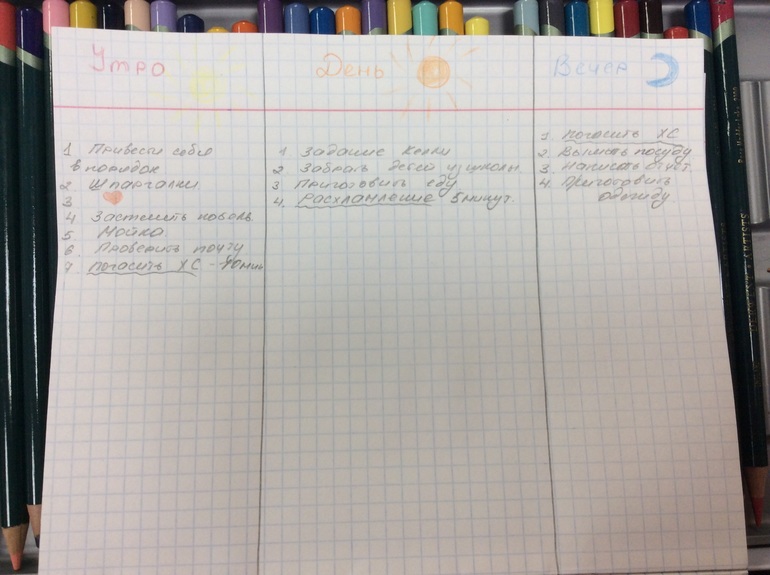 Утро
1 Привести себя
в порядок
2 Шпаргалки
3
4 Застелить
5. Мойка
6. Проверить почту
7 Погасить ХС -
День
1 Задание
2 Забрать детей из школы
3. Приготовить еду
4. Расхламление 5 минут.
Вечер
1. Погасить ХС
2. посуду
3. Написать отчет
4. Приготовить
одежду.